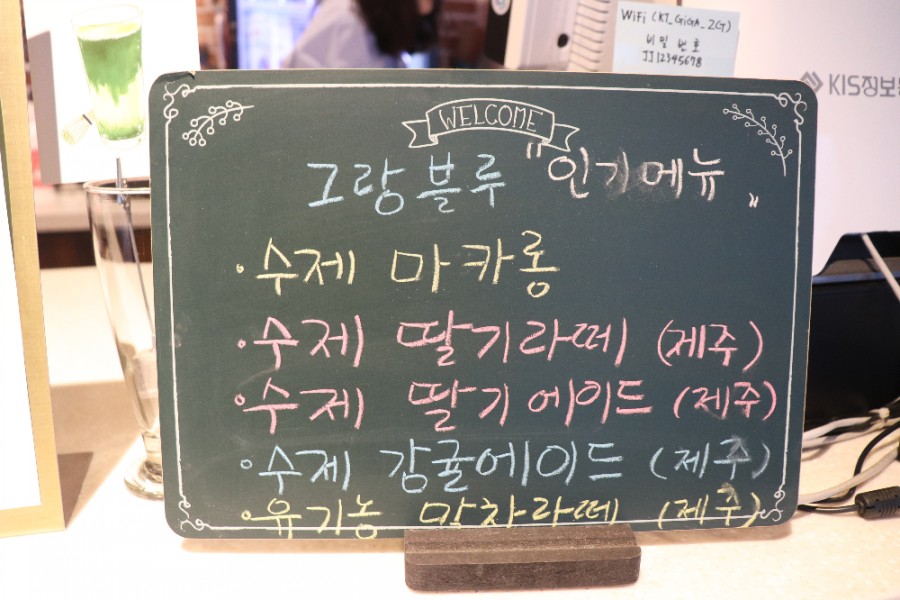 WiFi (KT_GiGA_2G)
비밀번호
JJ12345678
KIS정보
WELCOME
그랑블루 "인기메뉴"
· 수제 마카롱
· 수제 딸기라떼 (제주)
· 수제 딸기에이드 (제주)
· 수제 감귤에이드 (제주)
· 유기농 말차라떼 (제주)